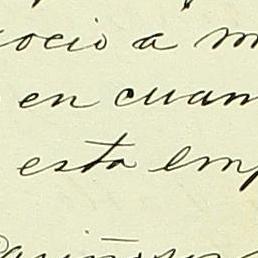 ocio a m
en cuan
esta emp